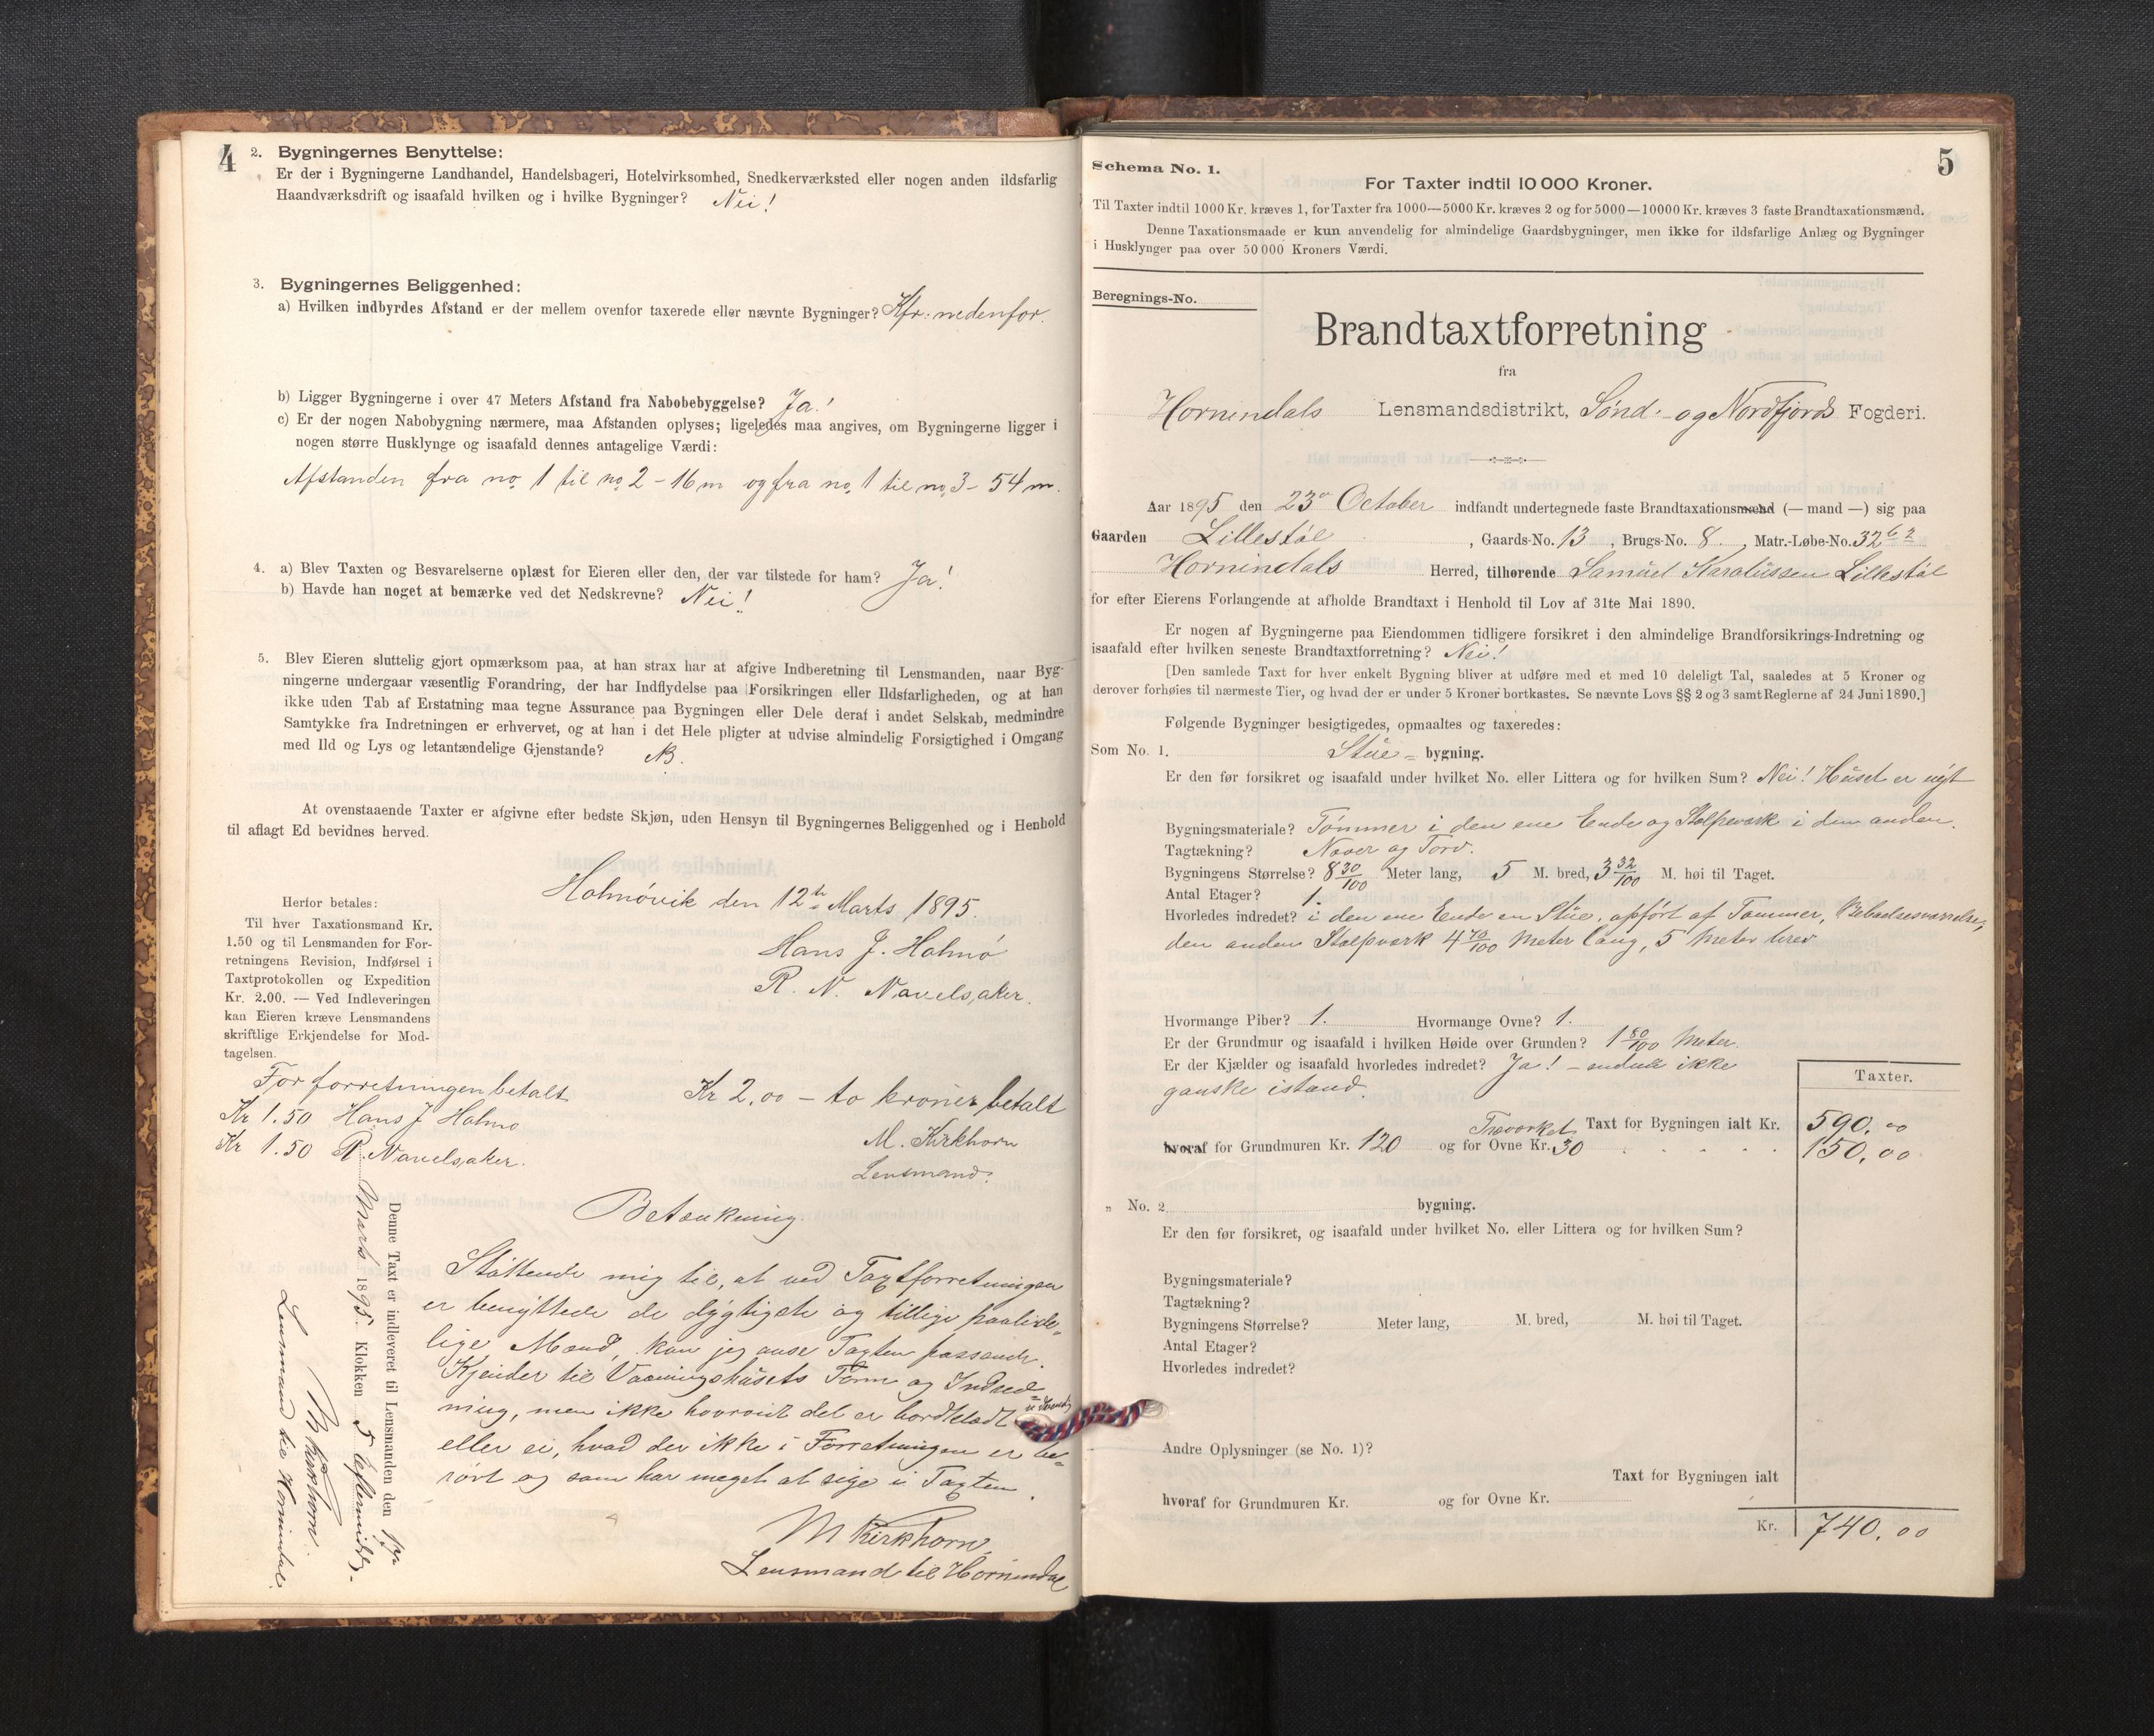 4
2. Bygningernes Benyttelse:
Er der i Bygningerne Landhandel, Handelsbageri, Hotelvirksomhed, Snedkerværksted eller nogen anden ildsfarlig
Haandværksdrift og isaafald hvilken og i hvilke Bygninger? Nei!
3. Bygningernes Beliggenhed:
a) Hvilken indbyrdes Afstand er der mellem ovenfor taxerede eller nævnte Bygninger? Kfr. nedenfor.
b) Ligger Bygningerne i over 47 Meters Afstand fra Nabobebyggelse? Ja!
c) Er der nogen Nabobygning nærmere, maa Afstanden oplyses; ligeledes maa angives, om Bygningerne ligger i
nogen større Husklynge og isaafald dennes antagelige Værdi:
Afstanden fra no. 1 til no. 2 - 16 m og fra no. 1 til no. 3 - 54 m.
4. a) Blev Taxten og Besvarelserne oplæst for Eieren eller den, der var tilstede for ham? Ja!
b) Havde han noget at bemærke ved det Nedskrevne? Nei!
5. Blev Eieren sluttelig gjort opmærksom paa, at han strax har at afgive Indberetning til Lensmanden, naar Byg-
ningerne undergaar væsentlig Forandring, der har Indflydelse paa Forsikringen eller Ildsfarligheden, og at han
ikke uden Tab af Erstatning maa tegne Assurance paa Bygningen eller Dele deraf i andet Selskab, medmindre
Samtykke fra Indretningen er erhvervet, og at han i det Hele pligter at udvise almindelig Forsigtighed i Omgang
med Ild og Lys og letantændelige Gjenstande?
At ovenstaaende Taxter er afgivne efter bedste Skjøn, uden Hensyn til Bygningernes Beliggenhed og i Henhold
til aflagt Ed bevidnes herved.
Holmøvik den 12te Marts 1895.
Hans J. Holmø
R. N. Navelsaker.
Herfor betales:
Til hver Taxationsmand Kr.
1.50 og til Lensmanden for For-
retningens Revision, Indførsel i
Taxtprotokollen og Expedition
Kr. 2.00. — Ved Indleveringen
kan Eieren kræve Lensmandens
skriftlige Erkjendelse for Mod-
tagelsen.
For forretningen betalt
Kr 1.50 Hans J Holmø
Kr 1.50 R. Navelsaker.
Kr 2,00 – to kroner betalt
M. Kirkhorn
Lensmand.
Denne Taxt er indleveret til Lensmanden den
Marts 1895. Klokken 5 Eftermiddg.
M Kirkhorn.
Lensmand til Hornindal.
Betænkning.
Støttende mig til, at ved Taxtforretningen
er benyttede de dygtigste og tillige paalide-
lige Mænd, kan jeg anse Taxten passende.
Kjender til Vaaningshusets Form og Indred-
ning, men ikke hvorvidt det er bordklædt
eller ei, hvad der ikke i Forretningen er be-
rørt og som har meget at sige i Taxten.
M Kirkhorn,
Lensmand til Hornindal
5
Schema No. 1.
For Taxter indtil 10 000 Kroner.
Til Taxter indtil 1000 Kr. kræves 1, for Taxter fra 1000—5000 Kr. kræves 2 og for 5000—10000 Kr. kræves 3 faste Brandtaxationsmænd.
Denne Taxationsmaade er kun anvendelig for almindelige Gaardsbygninger, men ikke for ildsfarlige Anlæg og Bygninger
i Husklynger paa over 50 000 Kroners Værdi.
Beregnings-No.
Brandtaxtforretning
fra
Hornindals Lensmandsdistrikt, Sønd- og Nordfjords Fogderi.
Aar 1895 den 23de October indfandt undertegnede faste Brandtaxationsmænd (— mand —) sig paa
Gaarden Lillestøl, Gaards-No. 13, Brugs-No. 8, Matr.-Løbe-No. 32
Hornindals Herred, tilhørende Samuel Karolussen Lillestøl
for efter Eierens Forlangende at afholde Brandtaxt i Henhold til Lov af 31te Mai 1890.
Er nogen af Bygningerne paa Eiendommen tidligere forsikret i den almindelige Brandforsikrings-Indretning og
isaafald efter hvilken seneste Brandtaxtforretning? Nei!
[Den samlede Taxt for hver enkelt Bygning bliver at udføre med et med 10 deleligt Tal, saaledes at 5 Kroner og
derover forhøies til nærmeste Tier, og hvad der er under 5 Kroner bortkastes. Se nævnte Lovs §§ 2 og 3 samt Reglerne af 24 Juni 1890.]
Følgende Bygninger besigtigedes, opmaaltes og taxeredes:
Som No. 1. Stue- bygning.
Er den før forsikret og isaafald under hvilket No. eller Littera og for hvilken Sum? Nei! Huset er nyt
Bygningsmateriale? Tømmer i den ene Ende og Stolpeværk i den anden.
Tagtækning? Næver og Torv.
Bygningens Størrelse? 8 30/100 Meter lang, 5 M. bred, 3 32/100 M. høi til Taget.
Antal Etager? 1.
Hvorledes indredet? i den ene Ende en Stue, opført af Tømmer, Beboelsesværelse,
den anden Stolpeværk 4 70/100 Meter lang, 5 Meter bred
Hvormange Piber? 1. Hvormange Ovne? 1.
Er der Grundmur og isaafald i hvilken Høide over Grunden? 1 80/100 Meter.
Er der Kjælder og isaafald hvorledes indredet? Ja! – endnu ikke
ganske istand.
Taxter.
Træværket Taxt for Bygningen ialt Kr. 590,00
hvoraf for Grundmuren Kr. 120 og for Ovne Kr. 30 150,00
„ No. 2 bygning.
Er den før forsikret, og isaafald under hvilket No. eller Littera og for hvilken Sum?
Bygningsmateriale?
Tagtækning?
Bygningens Størrelse? Meter lang, M. bred, M. høi til Taget.
Antal Etager?
Hvorledes indredet?
Andre Oplysninger (se No. 1)?
Taxt for Bygningen ialt
hvoraf for Grundmuren Kr. og for Ovne Kr.
Kr. 740,00